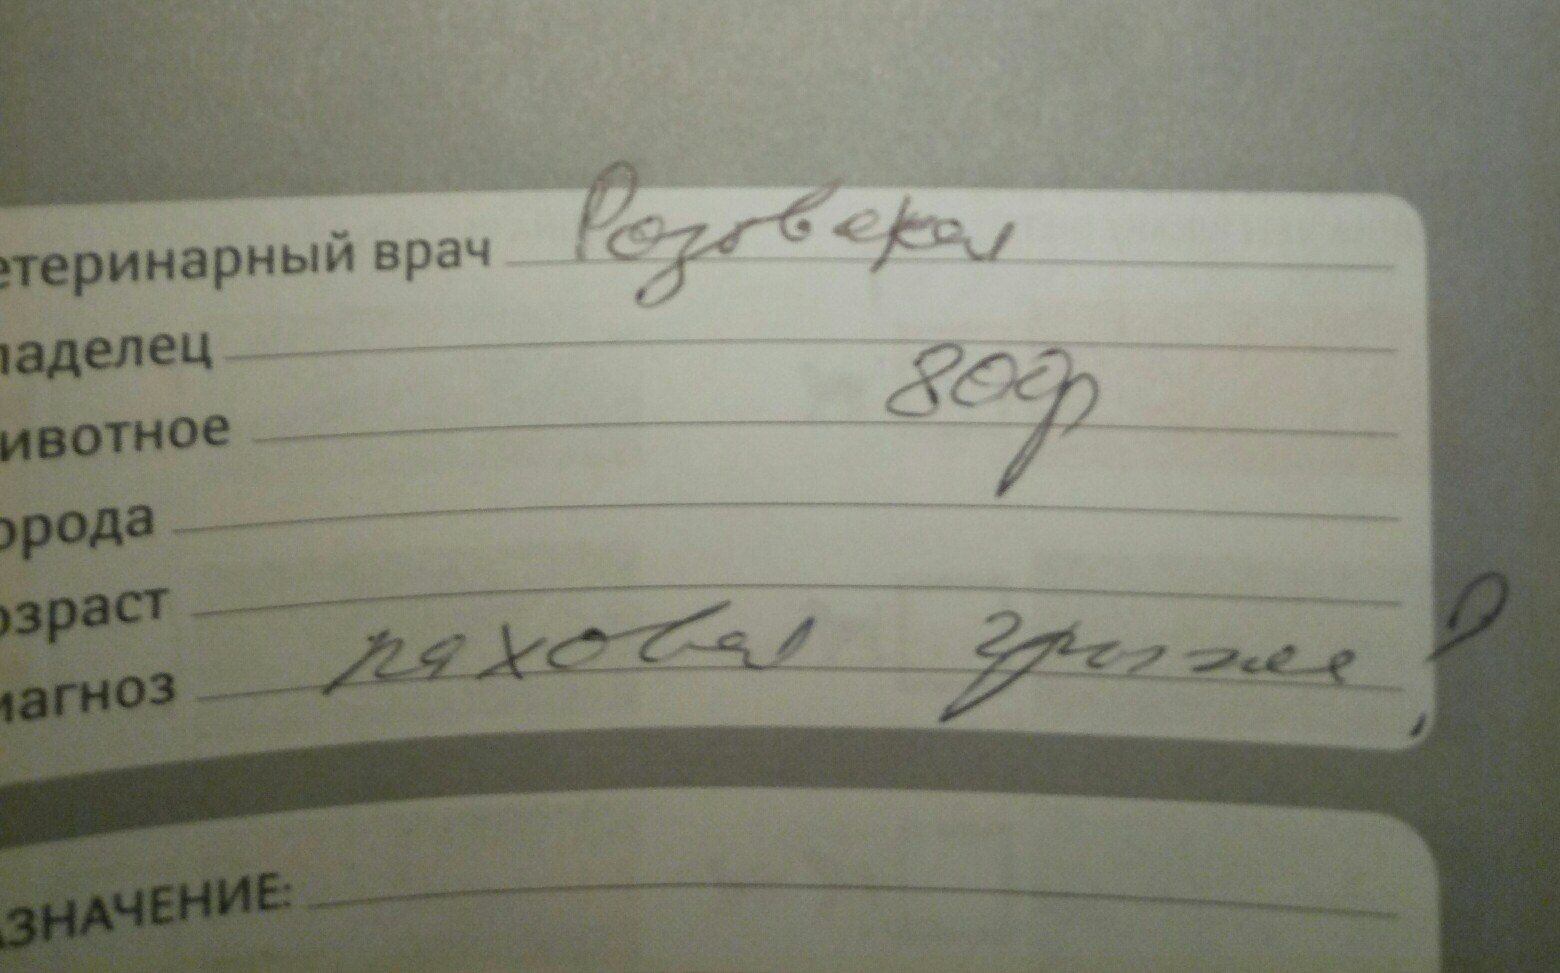 етеринарный врач Розовская
ладелец
ивотное 80ф
орода
озраст
иагноз паховая грыжа ?
АЗНАЧЕНИЕ: